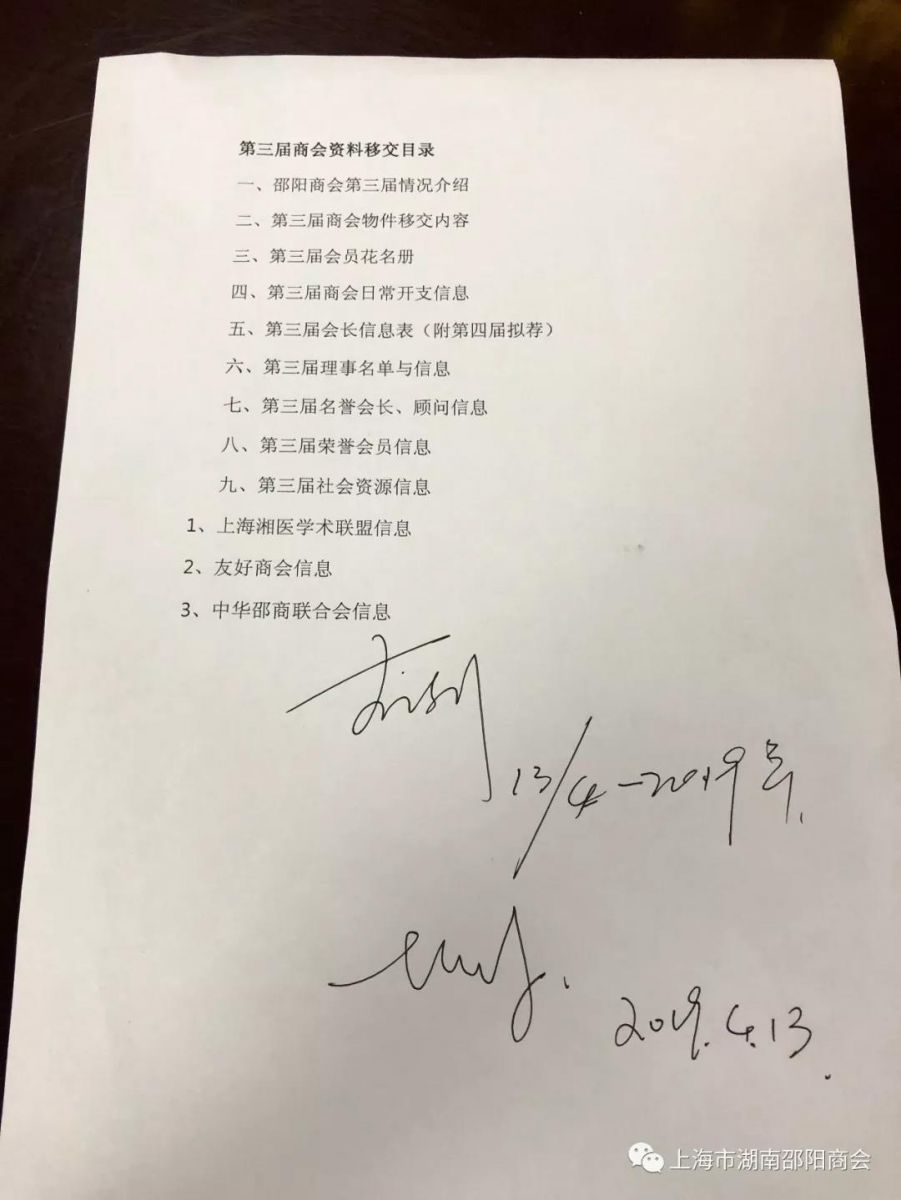 第三届商会资料移交目录
一、邵阳商会第三届情况介绍
二、第三届商会物件移交内容
三、第三届会员花名册
四、第三届商会日常开支信息
五、第三届会长信息表（附第四届拟荐）
六、第三届理事名单与信息
七、第三届名誉会长、顾问信息
八、第三届荣誉会员信息
九、第三届社会资源信息
1、上海湘医学术联盟信息
2、友好商会信息
3、中华邵商联合会信息
13/4-2019号
2019.4.13
上海市湖南邵阳商会